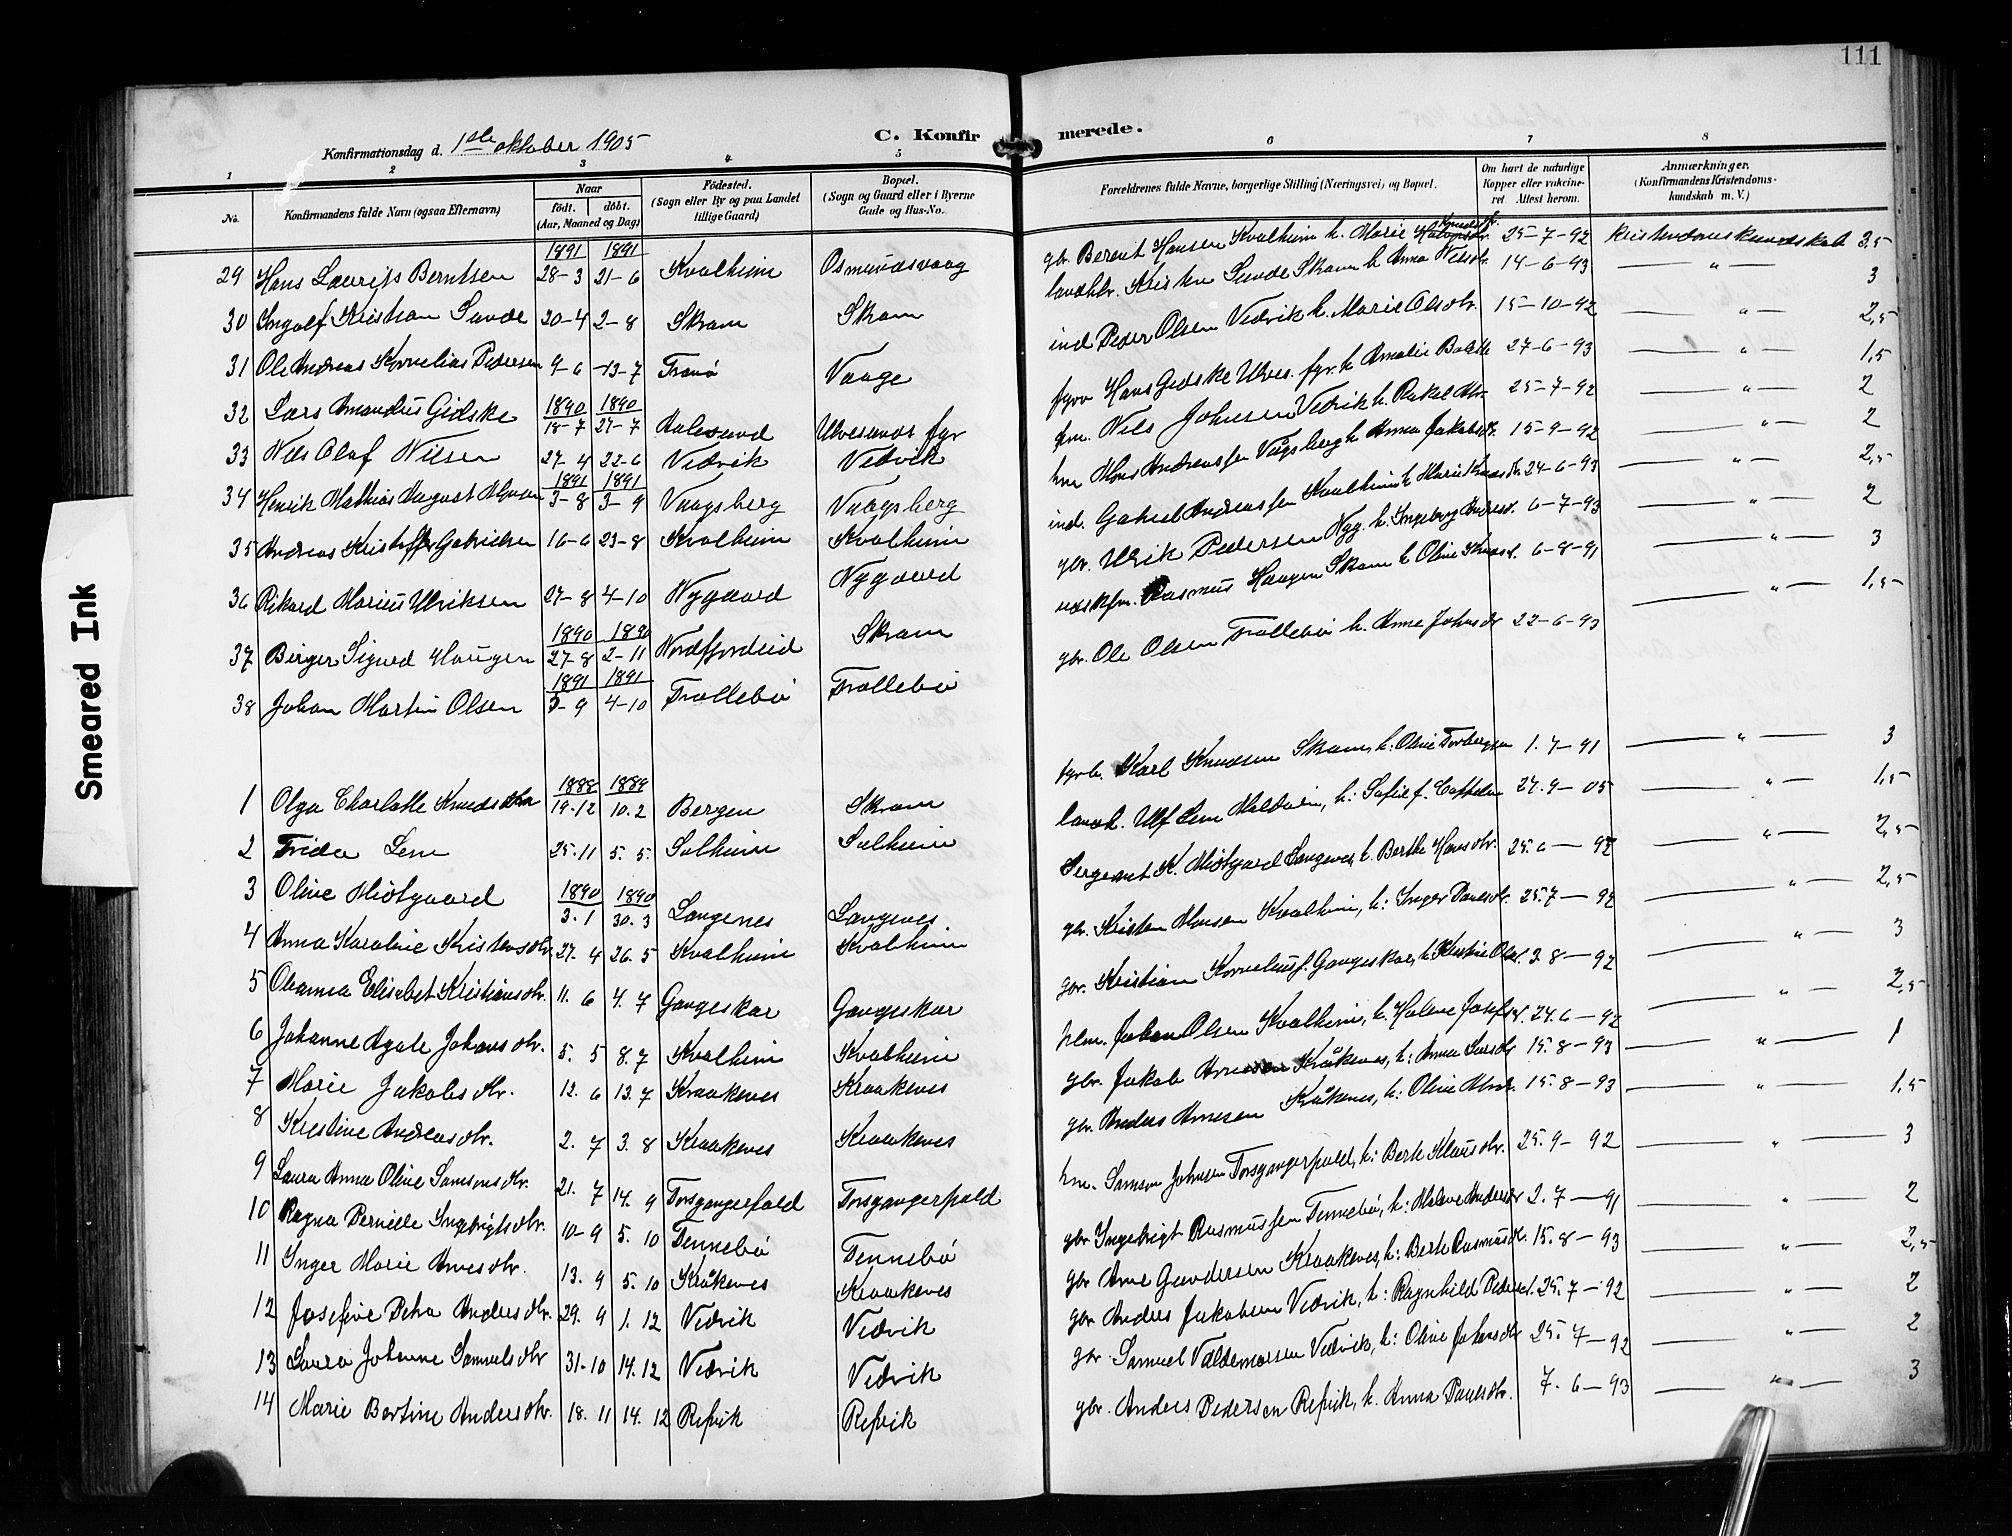 111
Smeared Ink
Konfirmationsdag d. 1ste oktober 1905 C. Konfirmerede.
1 2 3 4 5 6 7 8
No. Konfirmandens fulde Navn (ogsaa Efternavn) Naar født. døbt. (Aar, Maaned og Dag) Fødested. (Sogn eller By og paa Landet tillige Gaard) Bopæl. (Sogn og Gaard eller i Byerne Gade og Hus-No. Forældrenes fulde Navne, borgerlige Stilling (Næringsvei) og Bopæl. Om havt de naturlige Kopper eller vakcineret. Attest herom. Anmærkninger. (Konfirmandens Kristendomskundskab m. V.)
1891 1891
29 Hans Laurits Berntsen 28-3 21-6 Kvalheim Osmundsvaag gbr. Berent Hansen Kvalheim h. Marie 25-7-92 Kristendomskundskab 3,5
30 Ingolf Kristian Sunde 20-4 2-8 Skram Skram landhdl. Kristen Sunde Skram h. Anna Nilsdr. 14-6-93 — " — 3
31 Ole Andreas Kornelius Pedersen 9-6 13-7 Tranø Vaage ind. Peder Olsen Vedvik h. Marie Olsdtr. 15-10-92 — " — 2,5
1890 1890
32 Lars Amandus Gidske 18-7 27-7 Aalesund Ulvesunds fyr fyrv. Hans Gidske Ulves. fyr. h. Amalie 27-6-93 — " — 1,5
33 Nils Olaf Nilsen 27-4 22-6 Vedvik Vedvik Nils Johnsen Vedvik h. Rakel 25-7-92 — " — 2
1891 1891
34 Henrik Mathias August 3-8 3-9 Vaagsberg Vaagsberg hm. Mons Andreassen Vågsberg h. Anna Jakobsdr. 15-9-92 — " — 2
35 Andreas Kristoffer Gabrielsen 16-6 23-8 Kvalheim Kvalheim ind. Gabriel Andreassen Kvalheim h. Marie 24-6-93 — " — 2,5
36 Rikard Marius Ulriksen 27-8 4-10 Nygaard Nygaard gbr. Ulrik Pedersen Nyg. h. Ingeborg Andersd. 6-7-93 — " — 2
1890 1890
37 Birger Sigurd Haugen 27-8 2-11 Nordfjordeid Skram Rasmus Haugen Skram h. Oline 6-8-91 — " — 3
1891 1891
38 Johan Martin Olsen 3-9 4-10 Trollebø Trollebø gbr. Ole Olsen Trollebø h. Anna Johnsdr 22-6-93 — " — 1,5
1888 1889
1 Olga Charlotte Knudsen 19-12 10.2 Bergen Skram Karl Knudsen Skram, h: Oline Torbergsen 1.7-91 — " — 3
2 Frida Lem 25.11 5.5. Solheim Solheim landh. Ulf Lem Maldøen, h: Sofie f. Cappelen 27.9-05 — " — 1,5
1890 1890
3 Oline Midtgaard 3.1 30.3 Langenes Langenes Sergeant K. Midtgaard Langenes, h. Berthe Hansdr. 25.6-92 — " — 2,5
4 Anna Karoline Kristensdtr. 27.4 26.5 Kvalheim Kvalheim gbr. Kristen Monsen Kvalheim, h: Inger Danelsdr. 25.7-92 — " — 2,5
5 Olianna Elisabet Kristiansdtr. 11.6 4.7 Gangeskar Gangeskar gbr. Kristian Korneliusf. Gangeskar, h. Kristine Olsd. 2.8-92 — " — 3
6 Johanne Agate Johansdtr. 5.5 8.7 Kvalheim Kvalheim hlm. Johan Olsen Kvalheim, h. Malene Josefsd. 24.6-92 — " — 2,5
7 Marie Jakobsdtr. 12.6 13.7 Kraakenes Kraakenes gbr. Jakob Arnesen Kråkenes, h: Anna Larsdr 15.8-93 — " — 1
8 Kristine Andreasdtr. 2.7 3.8 Kraakenes Kraakenes gbr. Anders Arnesen Kråkenes, h: Oline 15.8-93 — " — 1,5
9 Laura Anna Oline Samsonsdtr. 21.7 14.9 Torsgangerpold Torsgangerpold hm. Samson Johnsen Torsgangerpold, h: Berte Klausdtr. 25.9-92 — " — 3
10 Ragna Pernille Ingebrigtsdtr. 10-9 5.10 Tennebø Tennebø gbr. Ingebrigt Rasmussen Tennebø, h: Malene Andersdr 2.7-91 — " — 2
11 Inger Marie Arnesdtr. 13.9 5.10 Kråkenes Kraakenes gbr. Arne Gundersen Kraakenes, h: Berte Rasmusd. 15.8-93 — " — 2,5
12 Josefine Petra Andersdtr. 29.9 1.12 Vedvik Vedvik gbr. Anders Jakobsen Vedvik, h: Ragnhild Pedersd. 25.7-92 — " — 2
13 Laura Johanne Samuelsdtr 31-10 14.12 Vedvik Vedvik gbr. Samuel Valdemarsen Vedvik, h: Oline Johansdtr 25.7-92 — " — 2
14 Marie Bertine Andersdtr. 18.11 14.12 Refvik Refvik gbr. Anders Pedersen Refvik, h. Anna Paulsdtr. 7.6-93 — " — 3